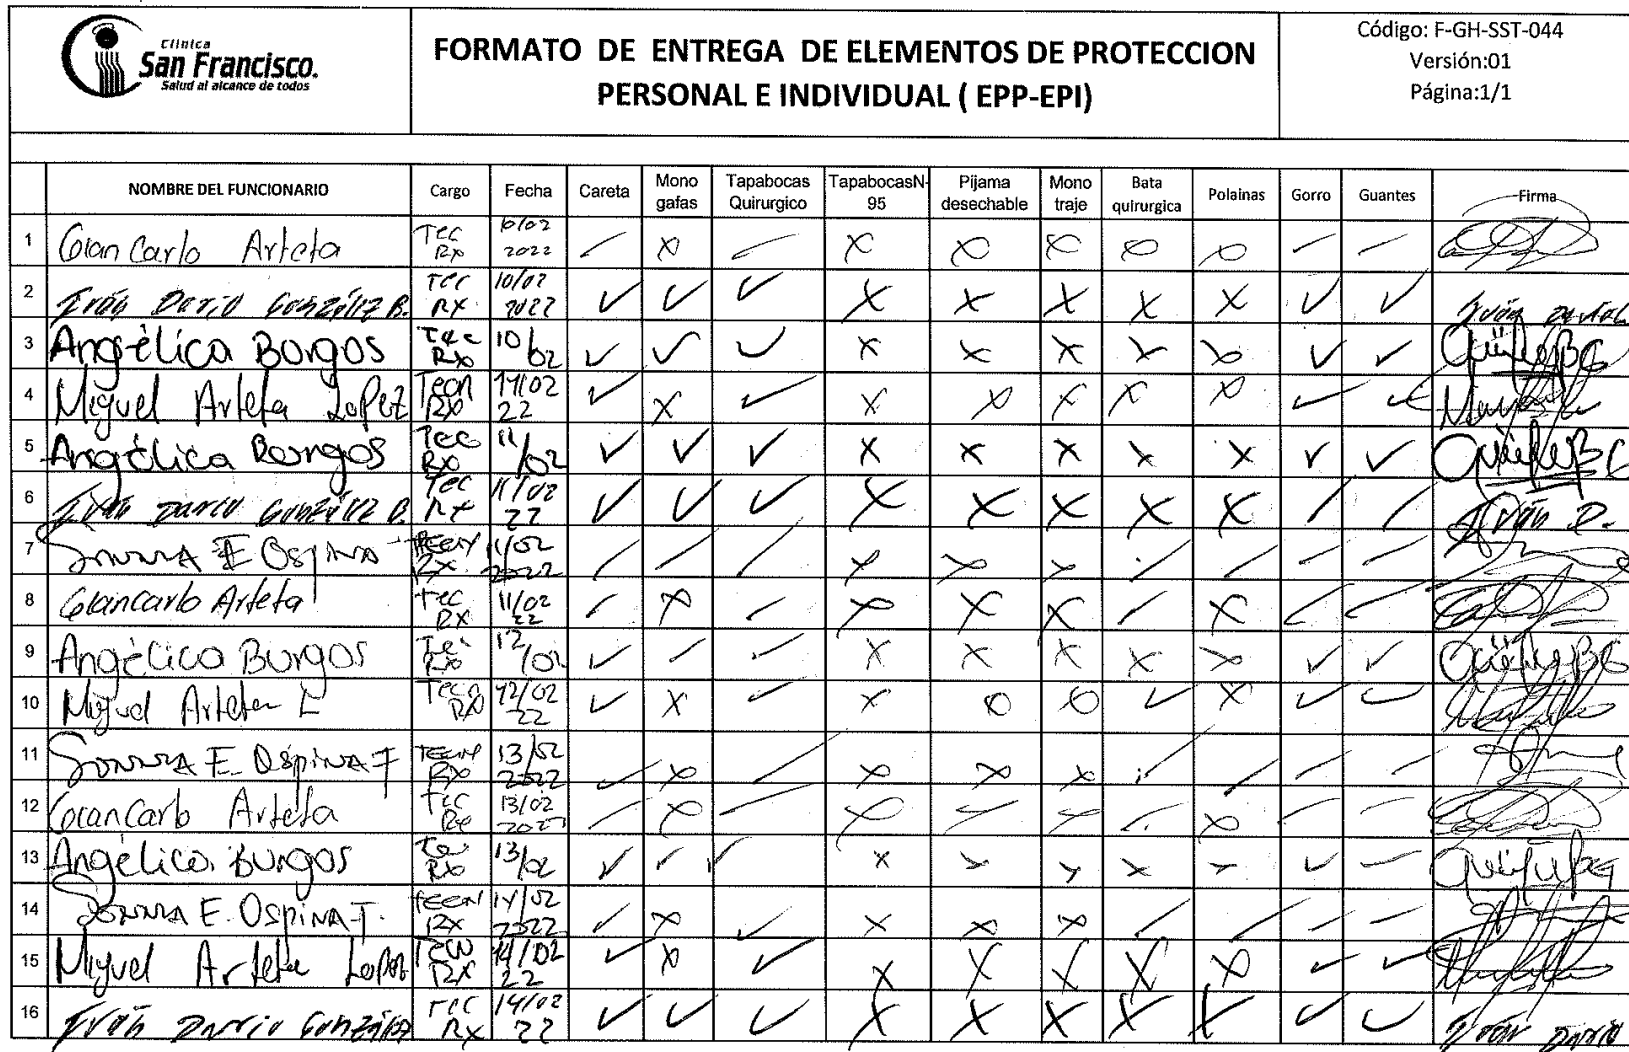 Clínica
San Francisco.
Salud al alcance de todos
FORMATO DE ENTREGA DE ELEMENTOS DE PROTECCION
PERSONAL E INDIVIDUAL ( EPP-EPI)
Código: F-GH-SST-044
Versión:01
Página:1/1
NOMBRE DEL FUNCIONARIO Cargo Fecha Careta Mono gafas Tapabocas Quirurgico TapabocasN-95 Pijama desechable Mono traje Bata quirurgica Polainas Gorro Guantes Firma
1 Giancarlo Arteta Tec Rx 10/02 2022 ✓ X ✓ X X X X X ✓ ✓
2 Iván Darío González B. Tec RX 10/02 2022 ✓ ✓ ✓ X X X X X ✓ ✓ Iván Darío
3 Angélica Borgos Tec Rx 10/02 ✓ ✓ ✓ X X X X X ✓ ✓
4 Miguel Arteta Lopez Tecn RX 11/02 22 ✓ X ✓ X X X X X ✓ ✓
5 Angélica Borgos Tec Rx 11/02 ✓ ✓ ✓ X X X X X ✓ ✓
6 Iván Darío González B. Tec Rx 11/02 22 ✓ ✓ ✓ X X X X X ✓ ✓ Iván D.
7 Sonnia E Ospina Tecn Rx 11/02 2022 ✓ ✓ ✓ X X X ✓ ✓ ✓ ✓
8 Giancarlo Arteta Tec Rx 11/02 22 ✓ X ✓ X X X ✓ X ✓ ✓
9 Angélica Burgos Tec Rx 12/02 ✓ ✓ ✓ X X X X X ✓ ✓
10 Miguel Arteta L Tecn RX 12/02 22 ✓ X ✓ X O O ✓ X ✓ ✓
11 Sonnia E. Ospina T Tecn RX 13/02 2022 ✓ X ✓ X X X ✓ ✓ ✓ ✓
12 Giancarlo Arteta Tec Rx 13/02 2022 ✓ X ✓ X ✓ ✓ ✓ X ✓ ✓
13 Angélica Burgos Tec Rx 13/02 ✓ ✓ ✓ X X X X X ✓ ✓
14 Sonnia E. Ospina T. Tecn RX 14/02 2022 ✓ X ✓ X X X ✓ ✓ ✓ ✓
15 Miguel Arteta Lopez Tecn RX 14/02 22 ✓ X ✓ X X X X X ✓ ✓
16 Iván Darío González Tec Rx 14/02 22 ✓ ✓ ✓ X X X X X ✓ ✓ Iván Darío